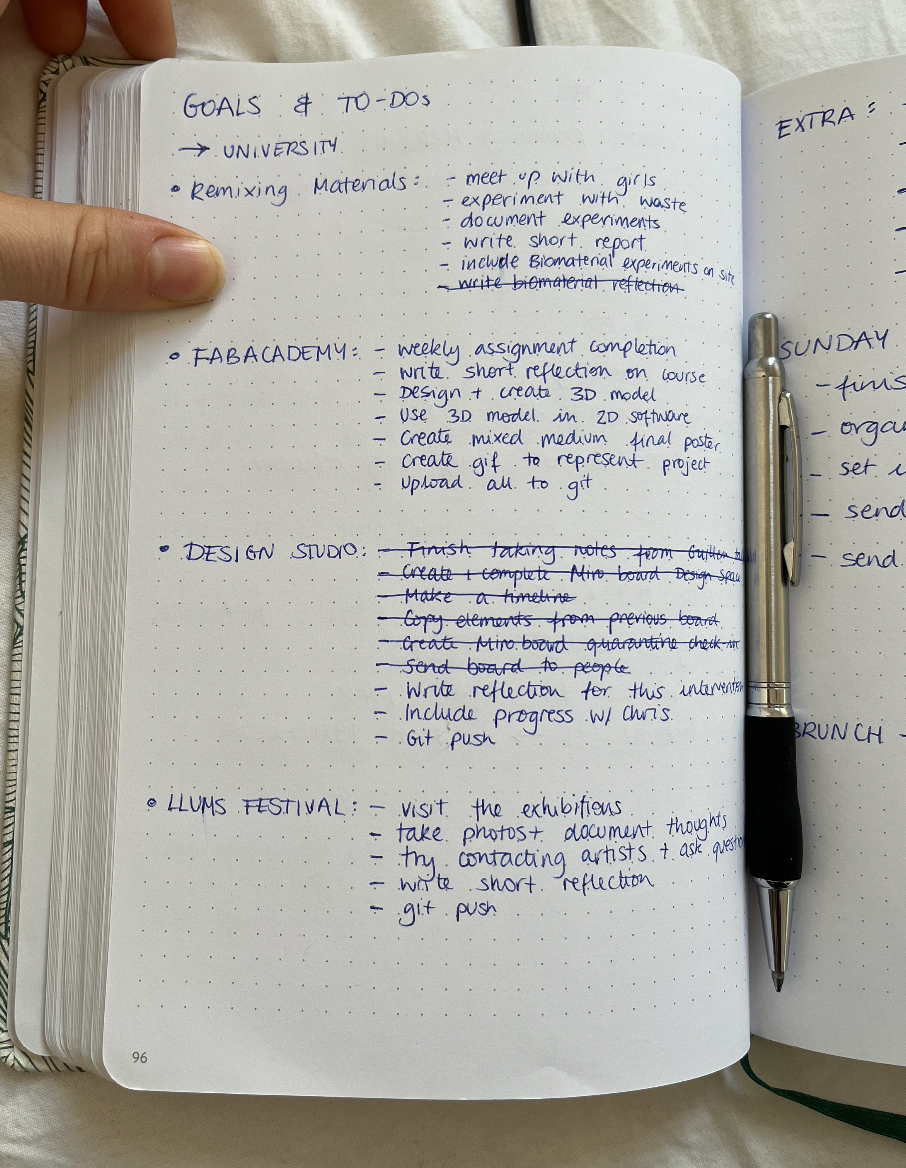 GOALS & TO-DOs
→ UNIVERSITY
• Remixing Materials: - meet up with girls
- experiment with waste
- document experiments
- write short report
- include Biomaterial experiments on site
- write biomaterial reflection
• FABACADEMY: - weekly assignment completion
- write short reflection on course
- Design + create 3D model
- Use 3D model in 2D software
- Create mixed medium final poster
- Create gif to represent project
- Upload all to git
• DESIGN STUDIO: - Finish taking notes from
- Create + complete Miro board Design Space
- Make a timeline
- Copy elements from previous board
- Create Miro board quarantine check-in
- Send board to people
- Write reflection for this intervention
- Include progress w/ Chris
- Git push
• LLUMS FESTIVAL: - visit the exhibitions
- take photos + document thoughts
- try contacting artists + ask
- write short reflection
- git push
96
EXTRA:
SUNDAY
- finis
- orga
- set
- send
- send
BRUNCH -